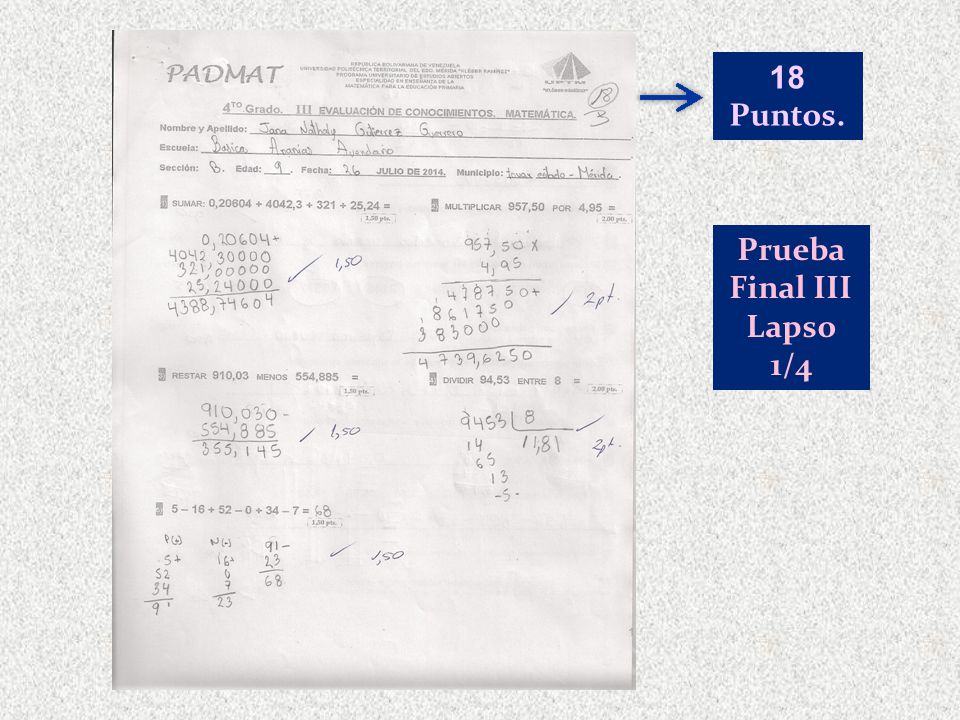 PADMAT
REPÚBLICA BOLIVARIANA DE VENEZUELA
UNIVERSIDAD POLITÉCNICA TERRITORIAL DEL EDO. MÉRIDA "KLÉBER RAMÍREZ"
PROGRAMA UNIVERSITARIO DE ESTUDIOS ABIERTOS
ESPECIALIDAD EN ENSEÑANZA DE LA
MATEMÁTICA PARA LA EDUCACIÓN PRIMARIA
UPTM
18
4TO Grado. III EVALUACIÓN DE CONOCIMIENTOS. MATEMÁTICA.
Nombre y Apellido: Jana Nathaly Gutierrez Guerrero
Escuela: Basica Ananias Avendaño
Sección: B. Edad: 9 Fecha: 26 JULIO DE 2014. Municipio: tovar - Mérida.
SUMAR: 0,20604 + 4042,3 + 321 + 25,24 =
1,50 pts.
0,20604+
4042,30000
321,00000
25,24000
4388,74604
1,50
MULTIPLICAR 957,50 POR 4,95 =
2,00 pts.
957,50 x
4,95
478750+
861750
383000
4739,6250
2pt.
RESTAR 910,03 MENOS 554,885 =
1,50 pts.
910,030-
554,885
355,145
1,50
DIVIDIR 94,53 ENTRE 8 =
2,00 pts.
9453 8
14 11,81
65
13
-5-
2pt.
5 – 16 + 52 – 0 + 34 – 7 = 68
1,50 pts.
P(+) N(-) 91-
5+ 16+ 23
52 0 68
34 7
91 23
1,50
18
Puntos.
Prueba
Final III
Lapso
1/4